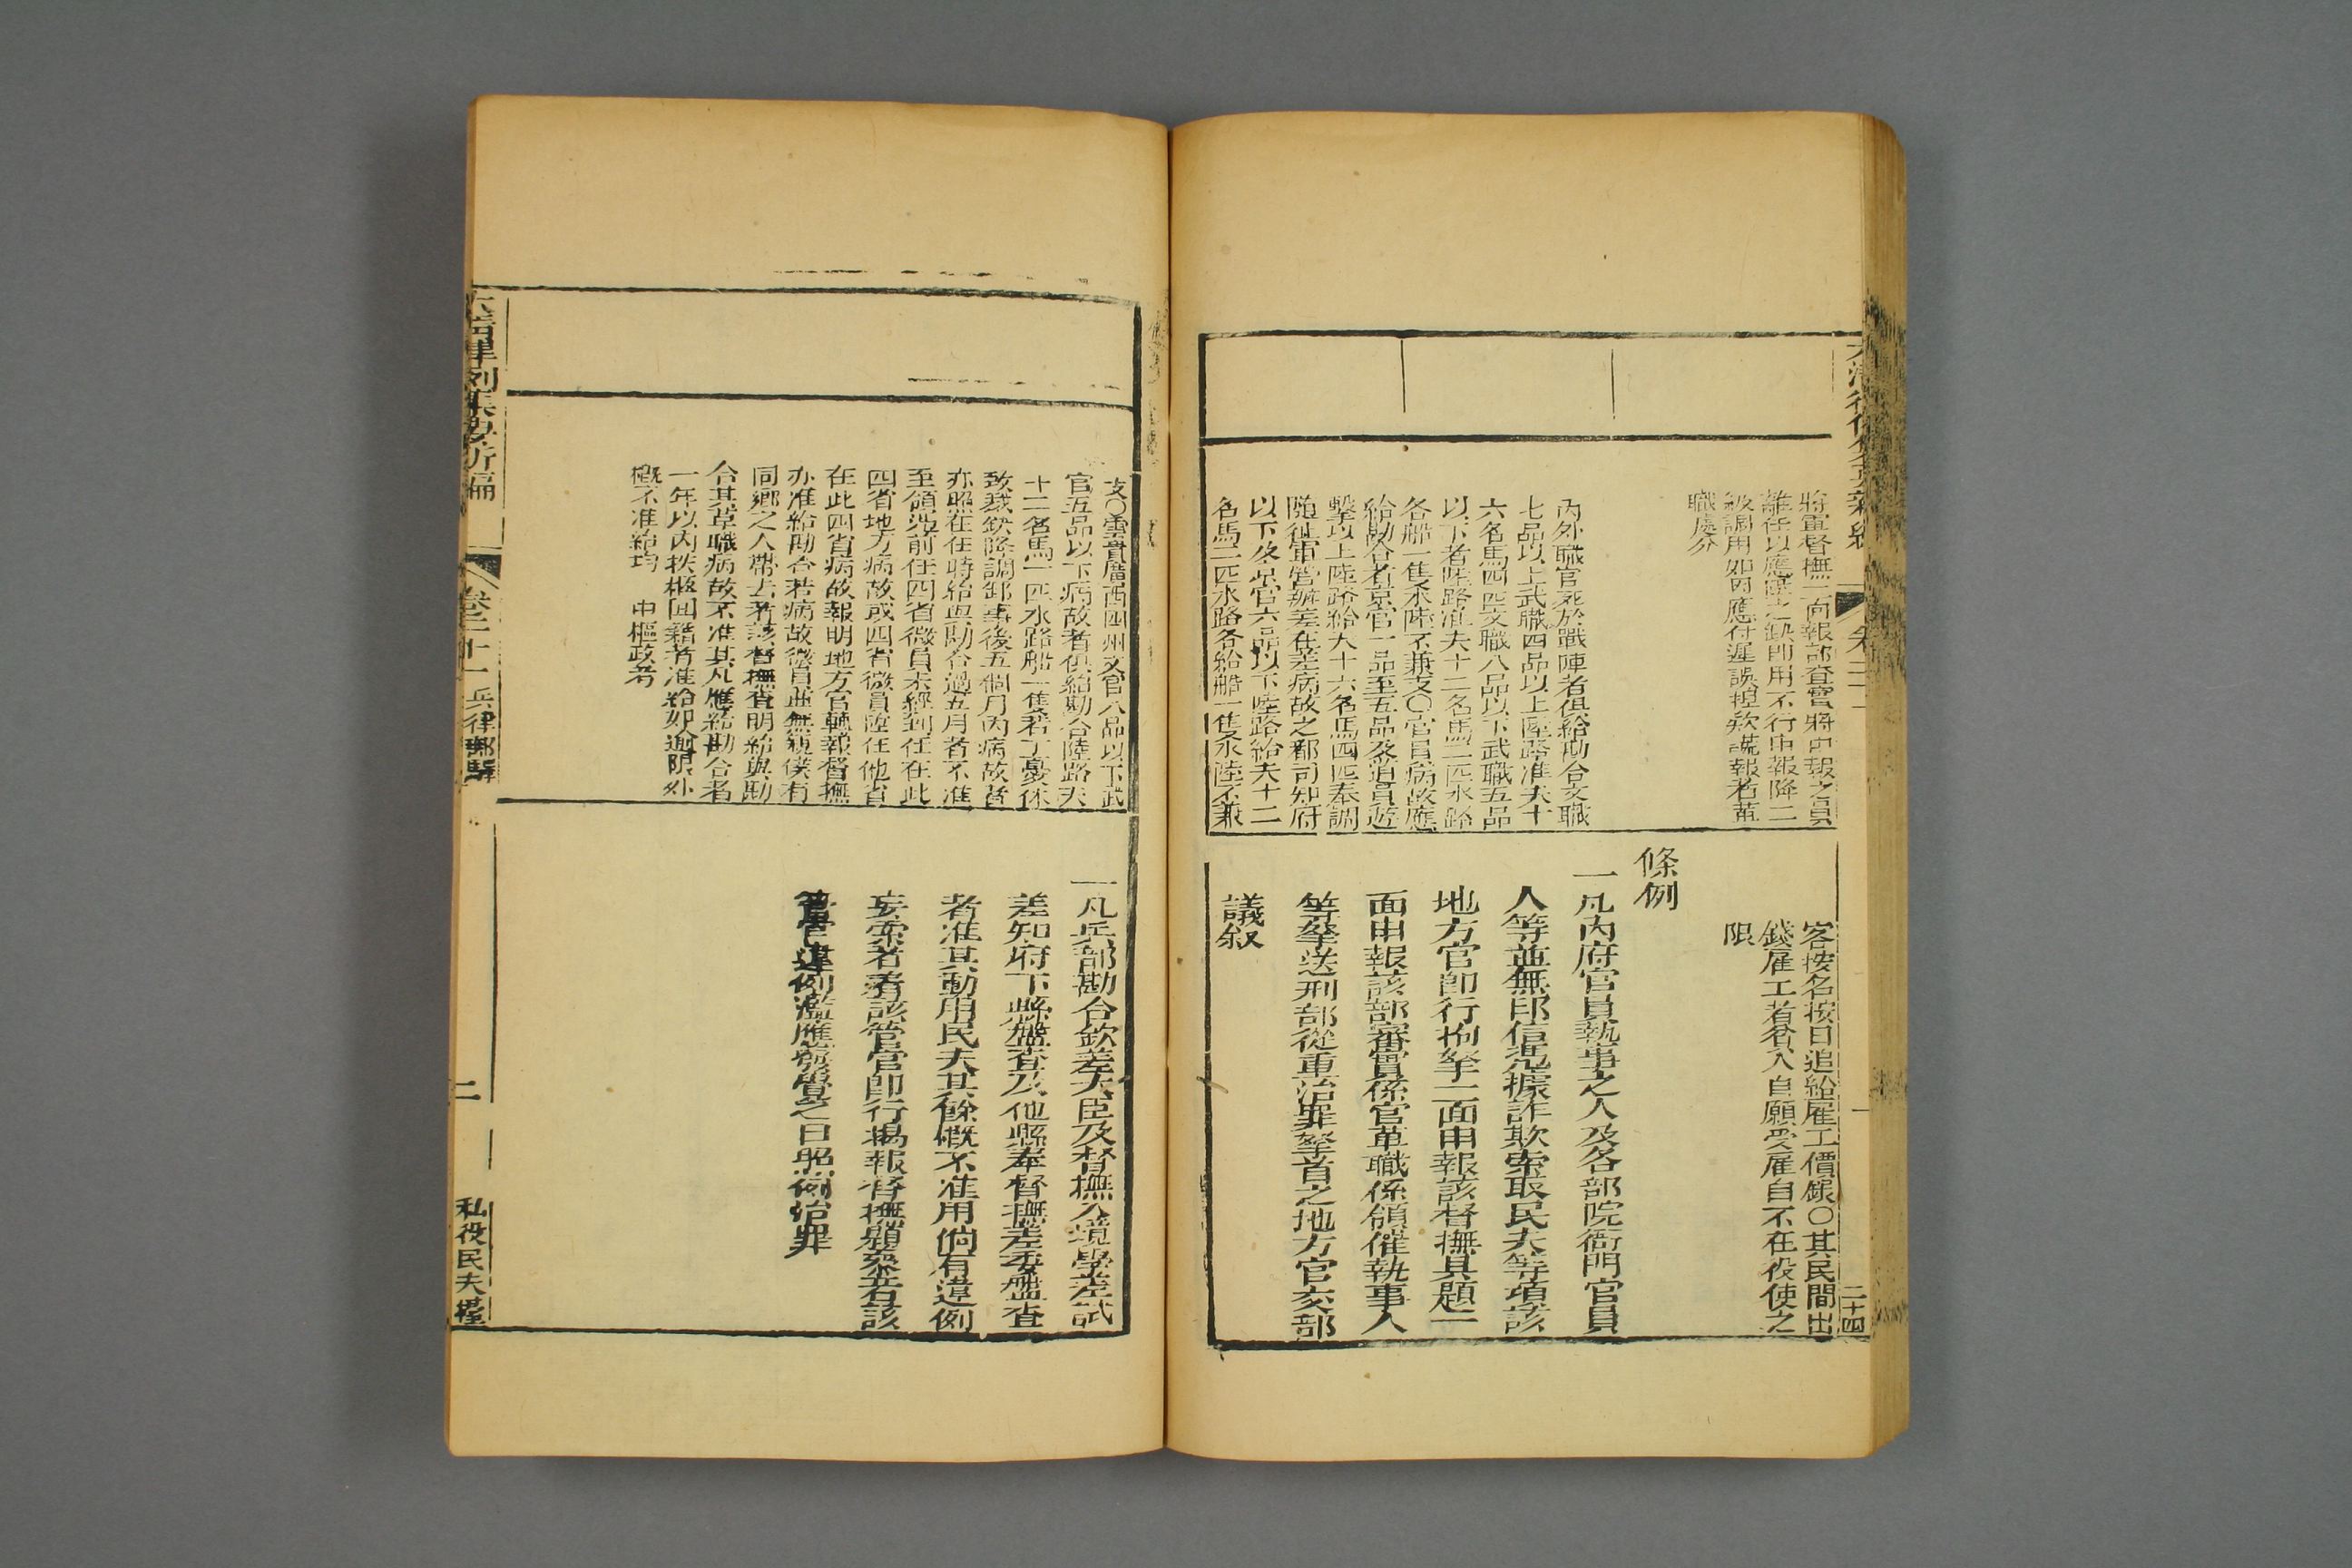 將軍督撫一面報部查實將中報之員
離任以應陞之缺即用不行申報降二
級調用如因應付遲誤捏欵謊報者革
職處分
內外職官死於戰陣者俱給勘合文職
七品以上武職四品以上陸路准夫十
六名馬四匹文職八品以下武職五品
以下者陸路准夫十二名馬二匹水路
各船一隻水陸不兼支〇官員病故應
給勘合者京官一品至五品及道員遊
擊以上陸路給夫十六名馬四匹奉調
隨征軍營辦差在差病故之都司知府
以下及京官六品以下陸路給夫十二
名馬二匹水路各給船一隻水陸不兼
客按名按日追給雇工價銀〇其民間出
錢雇工者貧人自願受雇自不在役使之
限
條例
一凡內府官員執事之人及各部院衙門官員
人等並無印信憑據詐欺索取民夫等項該
地方官即行拘拏一面申報該督撫具題一
面申報該部審實係官革職係領催執事人
等拏送刑部從重治罪拏首之地方官交部
議叙
二十四
支〇雲貴廣西四川文官八品以下武
官五品以下病故者俱給勘合陸路夫
十二名馬一匹水路船一隻若丁憂休
致裁缺降調卸事後五個月內病故者
亦照在任時給與勘合過五月者不准
至領凴前任四省微員未經到任在此
四省地方病故或四省微員陞任他省
在此四省病故報明地方官轉報督撫
亦准給勘合若病故微員並無親僕有
同鄉之人帶去者該督撫查明給與勘
合其革職病故不准其凡應給勘合者
一年以內扶櫬回籍者准給如逾限外
概不准給均 中樞政考
一凡兵部勘合欽差大臣及督撫入境學差試
差知府下縣盤查及他縣奉督撫差委盤查
者准其動用民夫其餘概不准用倘有違例
妄索者著該管官即行揭報督撫題參若該
管官違例濫應發覺之日照例治罪
大淸律例集要新編
卷二十一 兵律郵驛
二
私役民夫擡